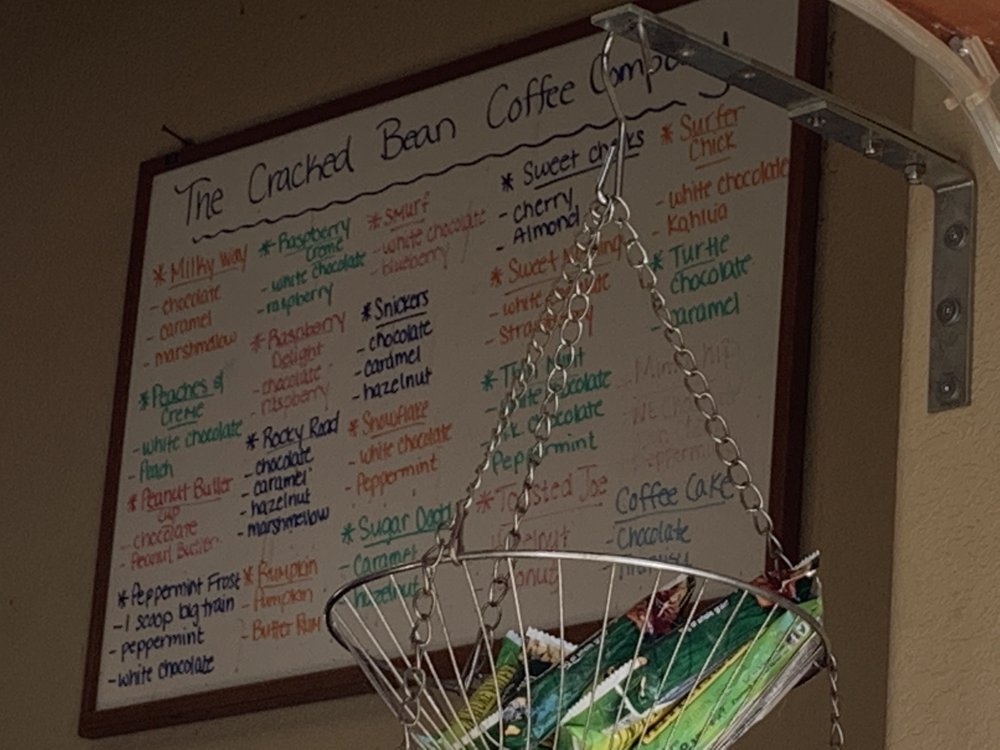 The Cracked Bean Coffee
* Milky Way
- chocolate
- caramel
- marshmallow
* Peaches &
Creme
- white chocolate
- Peach
* Peanut Butter
cup
- chocolate
- Peanut Butter
* Peppermint Frost
- 1 scoop big train
- peppermint
- white chocolate
* Raspberry
Creme
- white chocolate
- raspberry
* Raspberry
Delight
- chocolate
- raspberry
* Rocky Road
- chocolate
- caramel
- hazelnut
- marshmellow
* Pumpkin
- Pumpkin
- Butter Rum
* Smurf
- white chocolate
- blueberry
* Snickers
- chocolate
- caramel
- hazelnut
* Snowflake
- white chocolate
- Peppermint
* Sugar
- Caramel
- hazelnut
* Sweet
- cherry
- Almond
* Sweet
- white
* Mint
- white chocolate
chocolate
Peppermint
* Toasted Joe
* Surfer
Chick
- white chocolate
- Kahlua
* Turtle
- chocolate
- caramel
Coffee Cake
- Chocolate